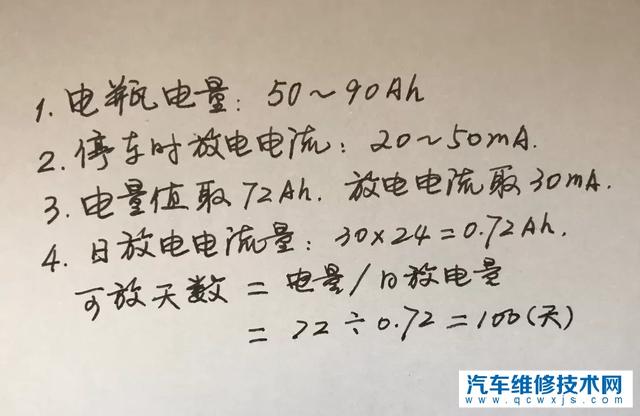 1. 电瓶电量: 50~90Ah
2. 停车时放电电流: 20~50mA.
3. 电量值取72Ah. 放电电流取30mA.
4. 日放电电流量: 30×24=0.72Ah.
可放天数 = 电量/日放电量
= 72÷0.72=100(天)
汽车维修技术网
www.qcwxjs.com